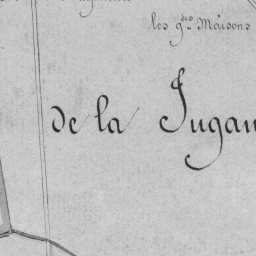 les g.des Maisons
de la Jugan